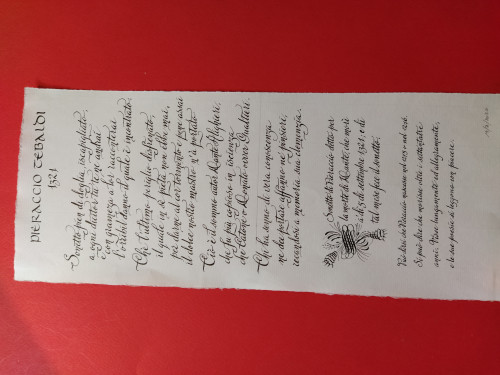 PIERACCIO TEBALDI
1321
Sonetto pien di doglia, iscapigliato,
a ogni dicitor tu te n'andrai
e con gramezza a lor racconterai
l'orribil danno il quale c'è incontrato.
Chè l'ultimo periglio dispietato,
il quale in sè pietà non ebbe mai,
per darne al cor tormento e pene assai
il dolce nostro mastro n'à portato.
Ciò è il sommo autor Dante Alighieri,
che fu più copioso in iscienza
che Catone o Donato ovver Gualtieri.
Chi ha senno di vera conoscenza
ne dee portar affanno ne' pensieri,
recandose a memoria sua clemenza.
Sonetto di Pieraccio detto per
la morte di Dante, che morì
a dì 13 di settembre 1321, e di
tal mese fece il sonetto.
che Pieraccio nascesse nel
Si può dire che
anni. Visse lungamente ed allegramente,
e le sue poesie si leggono con piacere.